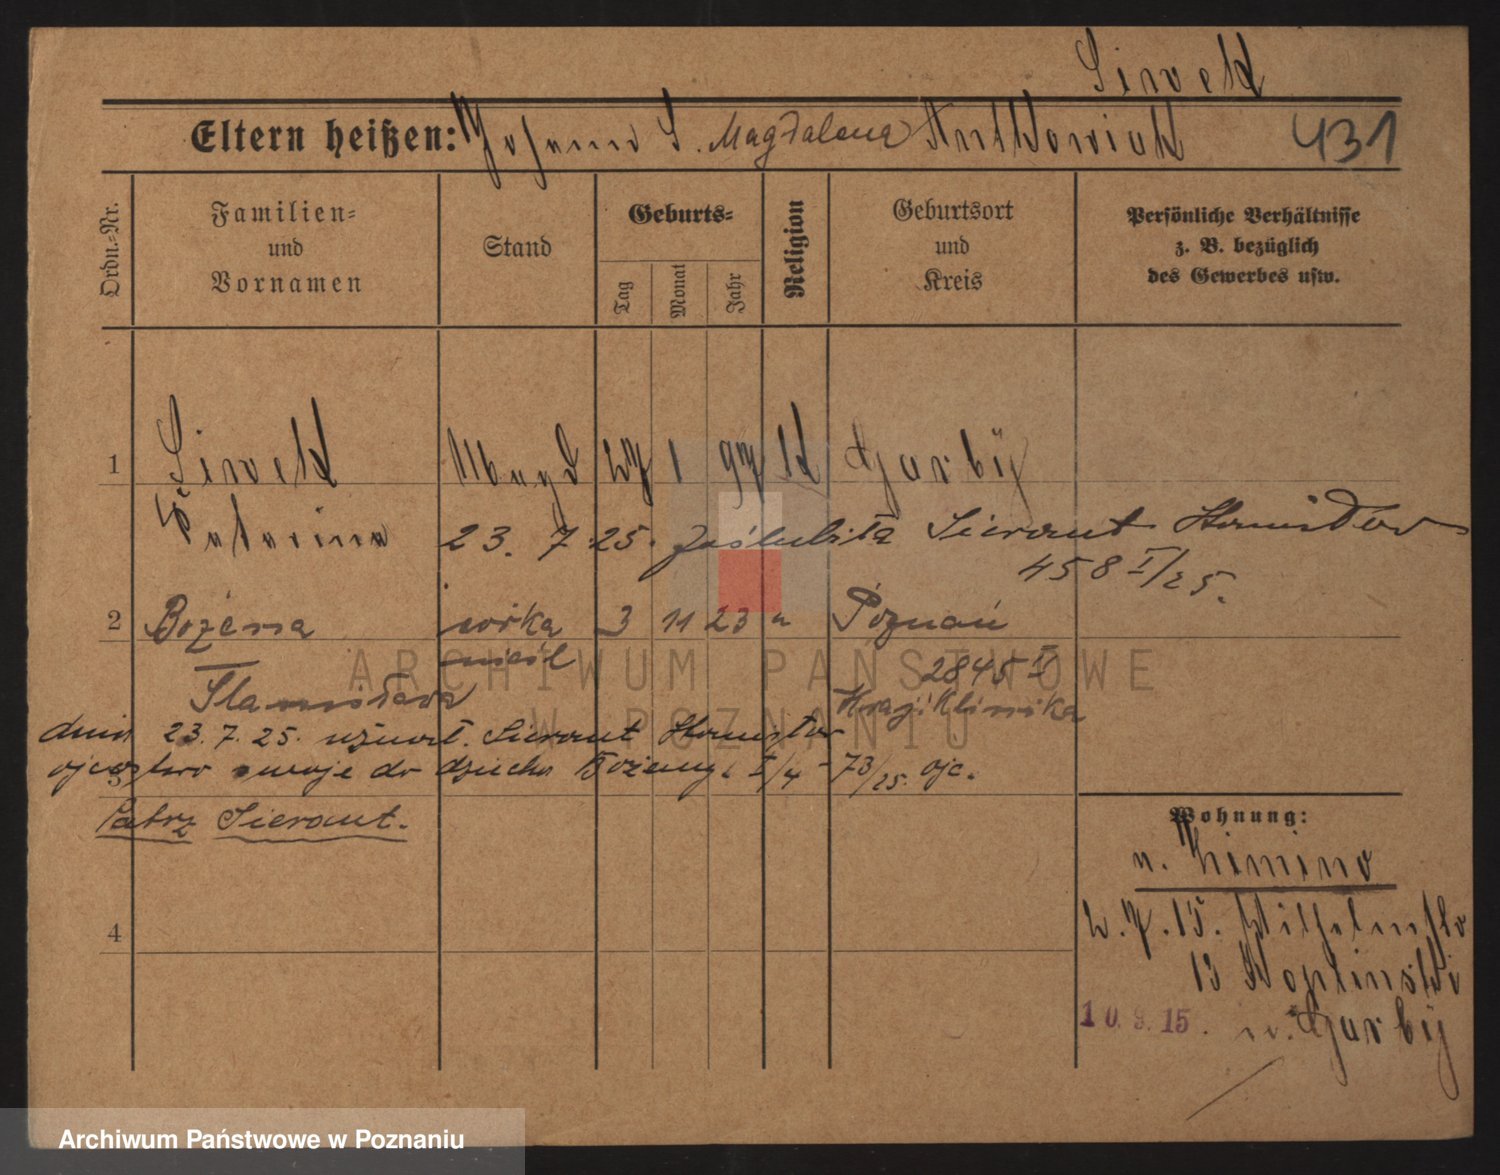 Siwek
Eltern heißen: Johann S. Magdalena Antkowiak 431
Ordn.-Nr. Familien- und Vornamen Stand Geburts- Tag Monat Jahr Religion Geburtsort und Kreis Persönliche Verhältnisse z. B. bezüglich des Gewerbes usw.
1 Siwek Magd 27 1 97 k Garby
23. 7. 25. zaślubiła Sierant Stanisław
458 I/25.
2 Bożena córka 3 11 23 " Poznań
nieśl 2845 V
Stanisława Kraj. Klinika
dnia 23.7.25. uznał Sierant Stanisław
3 ojcostwo swoje do dziecka Bożeny, I/4 - 73/25. ojc.
Patrz Sierant.
Wohnung:
n. Zimino
4
2.7.15. Wilhelmstr
13
10.9.15. n. Garby
ARCHIWUM PAŃSTWOWE
W POZNANIU
Archiwum Państwowe w Poznaniu